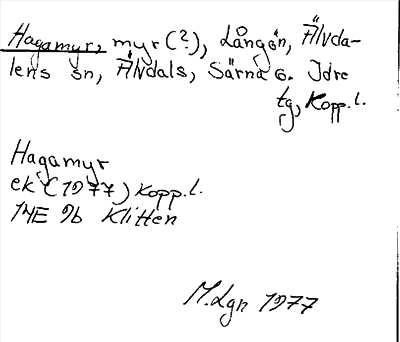 Hagamyr, myr (?), Långön, Älvda-
lens sn, Älvdals, Särna o. Idre
tg, Kopp.l.
Hagamyr
ek (1977) Kopp.l.
14E 9b Klitten
M.Lgn 1977